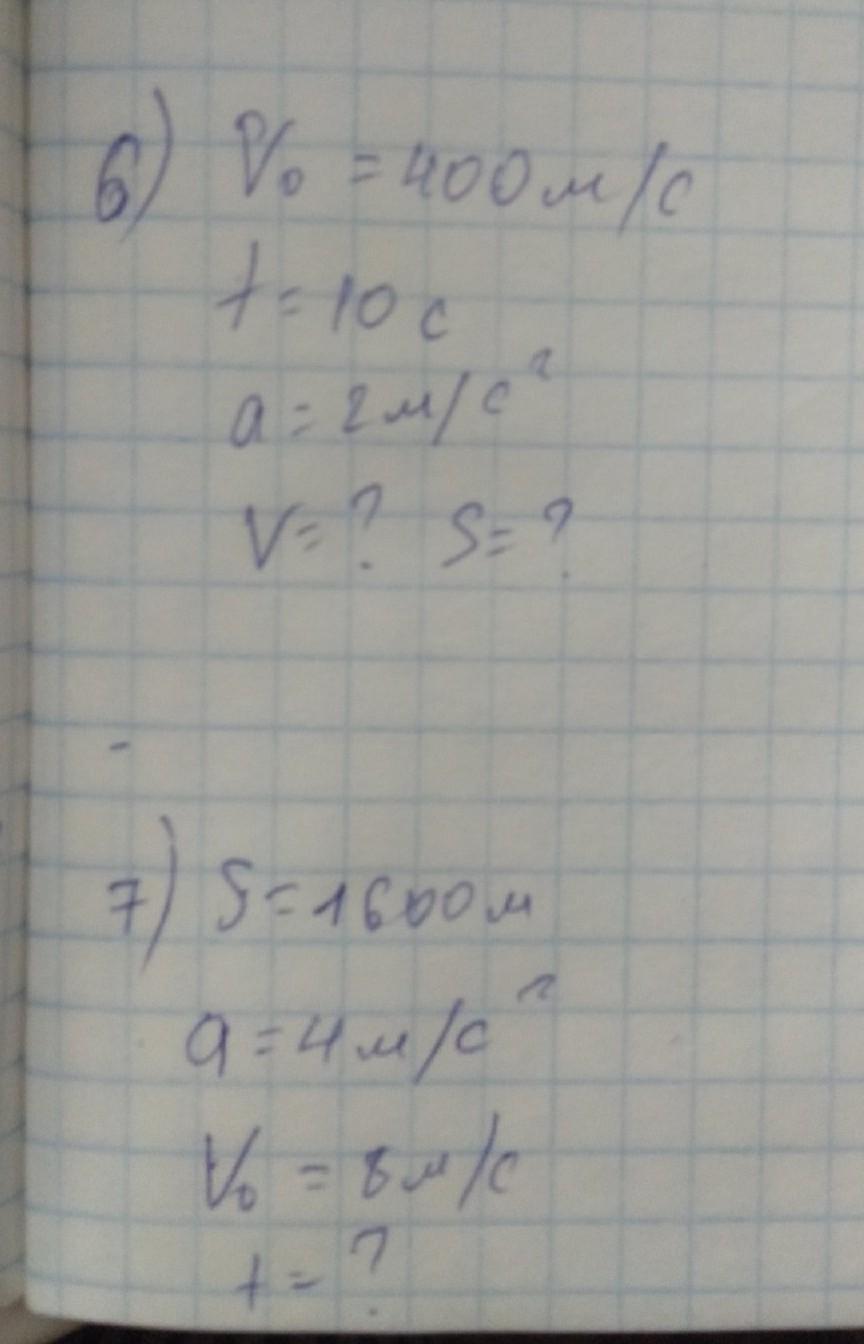 6) V₀ = 400 м/с
t = 10 с
a = 2 м/с²
V = ? S = ?
7) S = 1600 м
a = 4 м/с²
V₀ = 8 м/с
t = ?